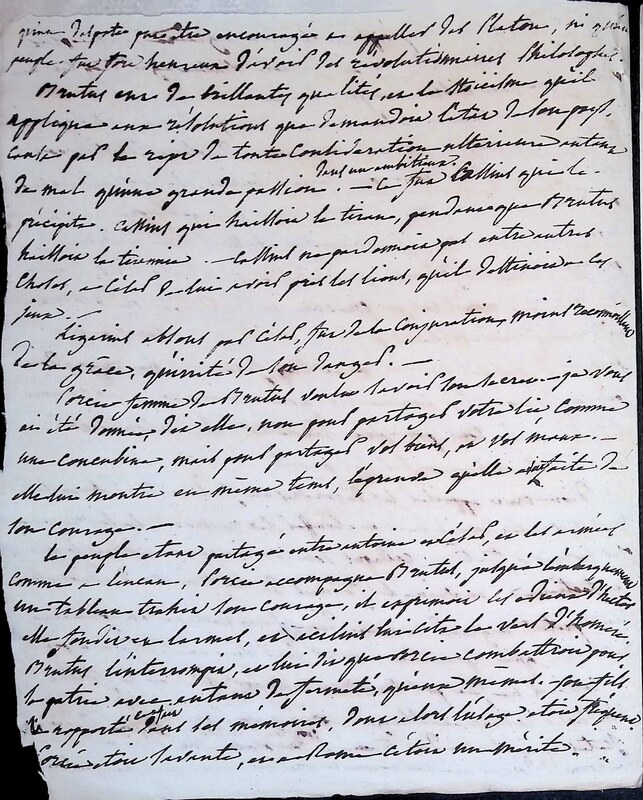 despotes pour être encouragés et appellés des Platon, ni
peuple fut tort heureux d'avoir des révolutionnaires Philosophes.
Brutus eut de brillantes qualités, et le Stoïcisme qu'il
appliqua aux résolutions que demandoit l'état de son pays,
causa par le mépris de toute considération ulterieure autant
de mal qu'une grande passion dans un ambitieux. — Ce fut Cassius qui le
précipita. Cassius qui haïssoit le tiran, pendant que Brutus
haïssoit la tirannie. — Cassius ne pardonnoit pas entre autres
choses, à César de lui avoir pris les lions, qu'il destinoit à ses
jeux. —
Ligarius absous par César, fut de la conjuration, moins reconnoissant
de la grâce, qu'irrité de son danger. —
Porcie femme de Brutus voulut savoir son secret — je vous
ai été donnée, dit elle, non pour partager votre lit, comme
une concubine, mais pour partager vos biens, et vos maux. —
elle lui montra en même tems, l'épreuve qu'elle a faite de
son courage. —
le peuple étant partagé entre antoine et césar, et les armées
comme à l'encan, Porcie accompagna Brutus, jusqu'à l'embarquement
un tableau trahit son courage, il exprimoit les adieux d'Hector
elle fondit en larmes, et acilius lui cita le vers d'Homère.
Brutus l'interrompit, et lui dit que Porcie combattroit pour
la patrie avec autant de fermeté, qu'eux mêmes. — son fils
rapporta ce fait dans les mémoires, dont alors l'usage étoit fréquent
Porcie étoit savante, et à Rome c'étoit un mérite. —